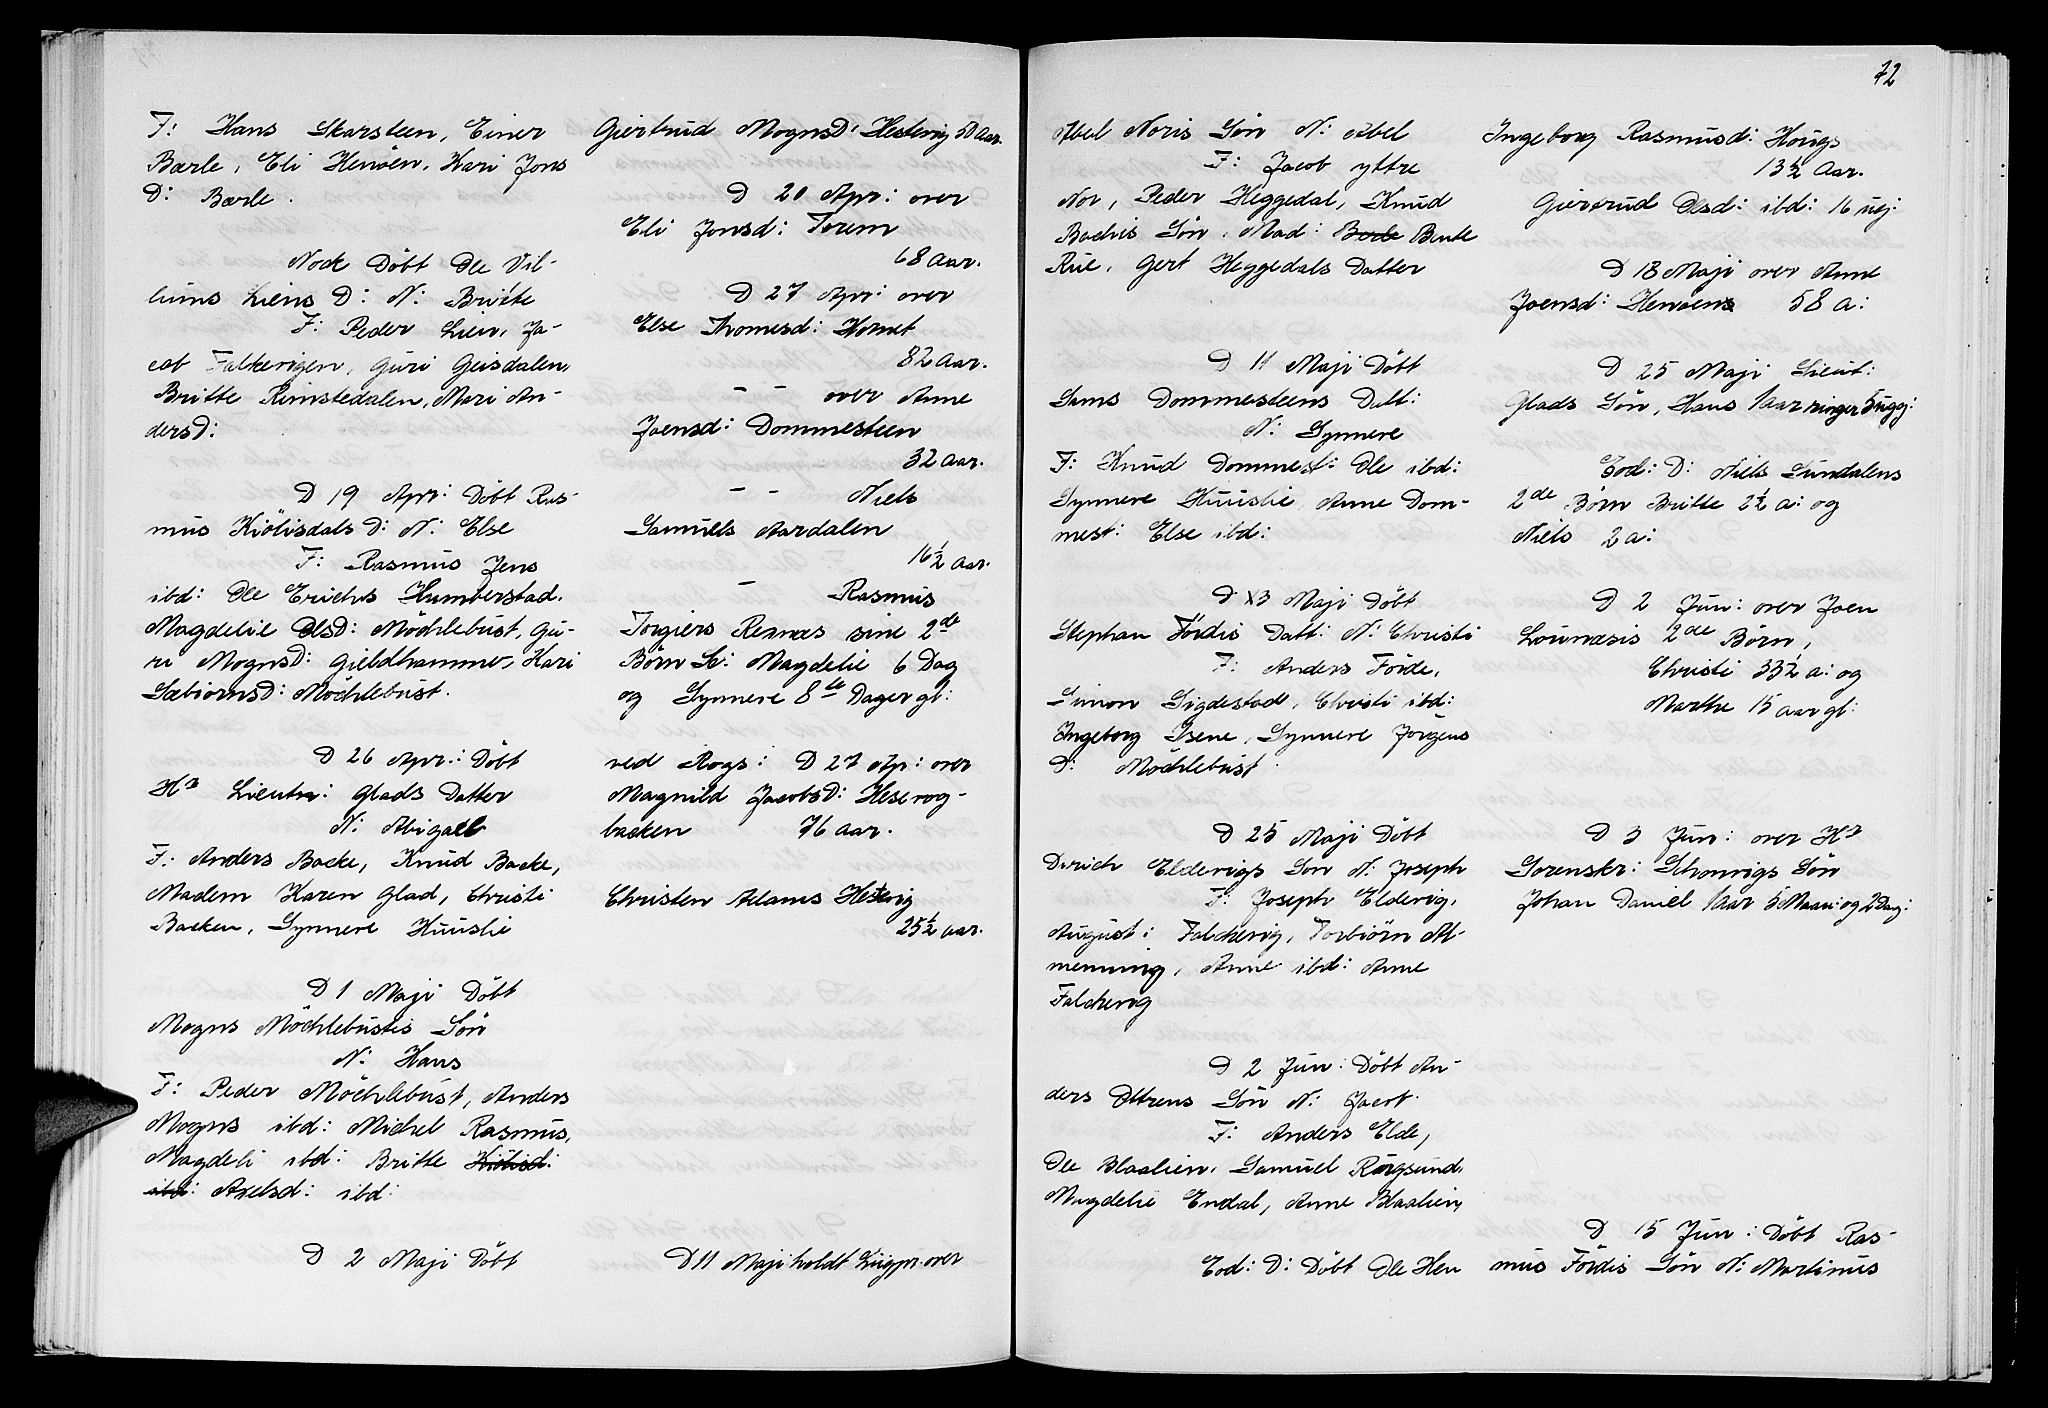 F: Hans Skarsteen, Einer
Bærle, Eli Henöen, Kari Jons
D: Bærle.
Nock Döbt Ole Vil-
lums Liens D: N: Britte
F: Peder Lien, Ja-
cob Falkevigen, Guri Geisdalen,
Britte Rimstedalen, Mari An-
dersD:
D 19 Apr: Döbt Ras-
mus Kiölisdals D: N: Else
F: Rasmus Jens
ibd: Ole Erichs Humberstad.
Magdelie OlsD: Möchlebust, Gu-
ri MognsD: Gieldhammer, Kari
SæbiornsD: Möchlebust.
D 26 Apr.: Döbt
Hr Lieutn: Glads Datter
N: Abigael
F: Anders Backe, Knud Backe,
Madem Karen Glad, Christi
Backen, Synnere Huuslie
D 1 Maji Döbt
Mogns Möchlebustis Sön
N: Hans
F: Peder Möchlebust, Anders
Mogns ibd: Michel Rasmus,
Magdeli ibd: Britte Kiölisd:
ibd: Axelsd: ibd:
D 2 Maji Döbt
Giertrud MognsD: Hestevig 50 Aar.
D 20 Apr: over
Eli Jonsd: Torem
68 Aar.
D 27 Apr: over
Else Thomesd: Hornet
82 Aar.
- - over Anne
Joensd: Dommesteen
32 Aar.
- - Niels
Samuels Aardalen
16½ Aar.
- Rasmus
Torgiers Rexnæs sine 2de
Börn Sc: Magdelie 6 Dag
og Synnere 8te Dager gl:
ved Rogs: D 27 Ap: over
Magnild JacobsD: Heserog-
backen 76 Aar.
Christen Adams Hestevig
25½ Aar.
D 11 Maji holdt Liigpr. over
72
Abel Noris Sön N: Abel
F: Jacob yttre
Nor, Peder Heggedal, Knud
Bachis Sön, Mad: Bode Bente
Rue, Gert Heggedals Datter
D 11 Maji Döbt
Sams Dommesteens Datt:
N: Synnere
F: Knud Dommest: Ole ibd:
Synnere Huuslie, Anne Dom-
mest: Else ibd:
D 13 Maji Döbt
Stephan Fördis Datt: N: Christi
F: Anders Förde,
Simon Sigdestad, Christi ibd:
Ingeborg Isene, Synnere Jörgens
D: Möchlebust.
D 25 Maji Döbt
Dirich Eldevigs Son N: Joseph
F: Joseph Eldevig,
August: Falchevig, Torbiörn Al-
menning, Anne ibd: Anne
Falchevig
D 2 Jun: Döbt An-
ders Ottrens Sön N: Jacob.
F: Anders Elde,
Ole Blaalien, Samuel Rögsund,
Magdelie Endal, Anne Blaalien,
Eod: D: Döbt Ole Hen
Ingeborg Rasmusd: Hougs
13½ Aar.
Giertrud Olsd: ibd: 16 ug:
D 18 Maji over Anne
Joensd: Henoens 58 a:
D 25 Maji Lieut:
Glads Sön, Hans 1 aar ringer 5 ugg:
Eod: D: Niels Sundalens
2de Börn Britte 2½ a: og
Niels 2 a:
D 2 Jun: over Joen
Lounæsis 2de Börn,
Christi 33½ a: og
Marthe 15 aar gl:
D 3 Jun: over Hr
Sorenskr: Schonvigs Sön
Johan Daniel 1 Aar 5 Maan: og 2 Dag:
D 15 Jun: Döbt Ras-
mus Fördis Sön N: Martinus